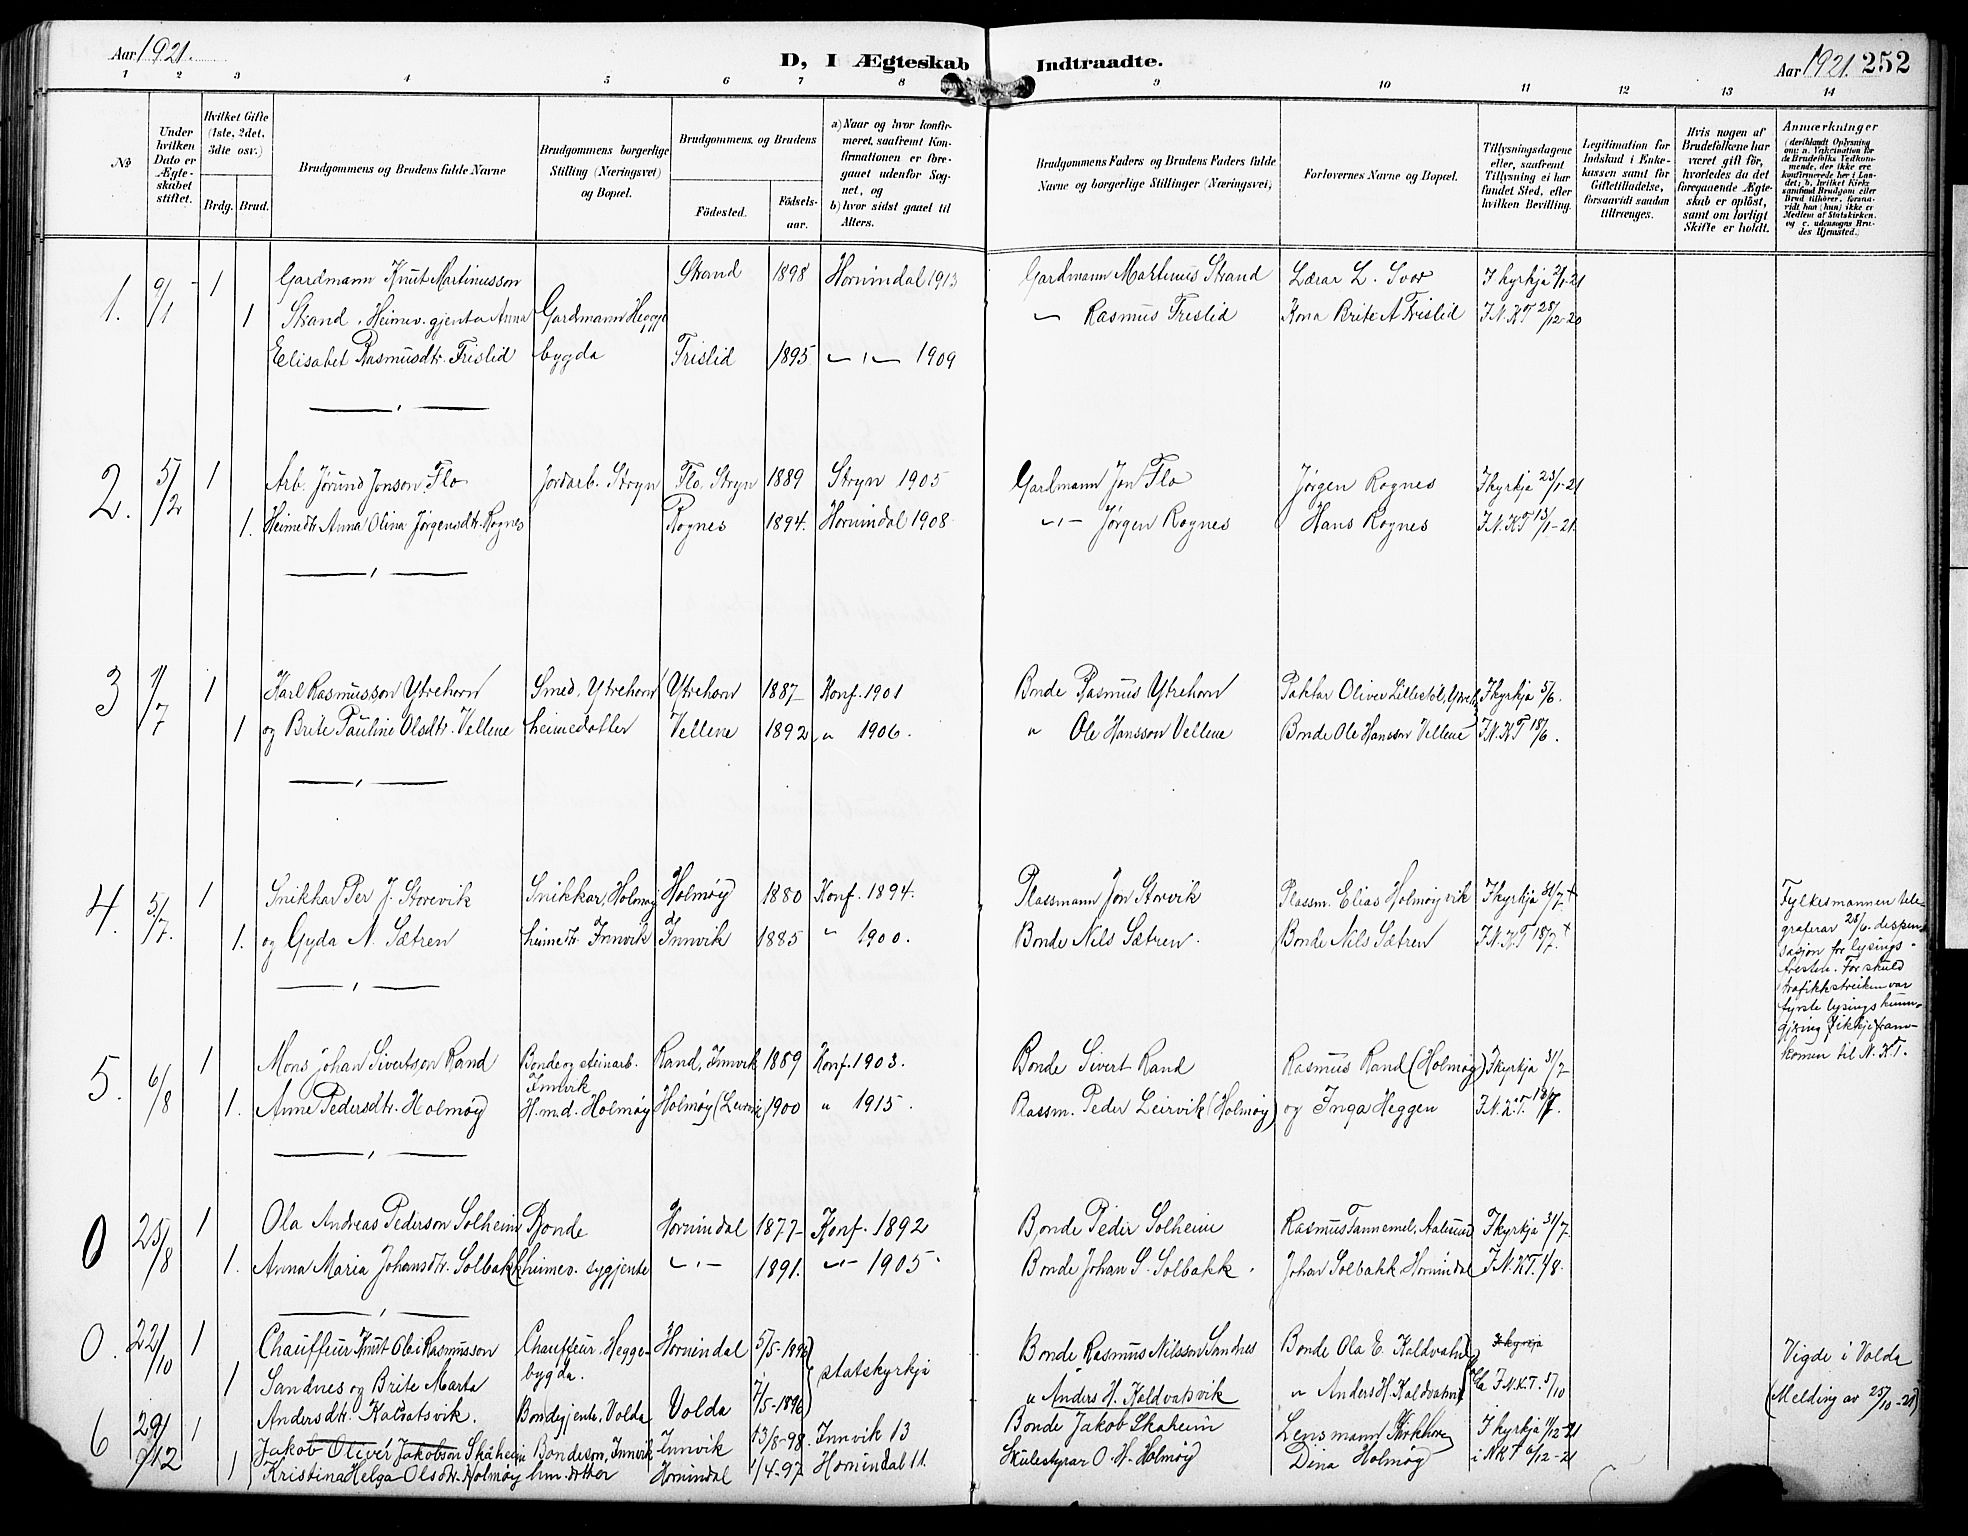 Aar 1921.
D, I Ægteskab Indtraadte.
Aar 1921. 252
1 2 3 4 5 6 7 8 9 10 11 12 13 14
No
Under hvilken Dato er Ægteskabet stiftet.
Hvilket Gifte (1ste, 2det, 3die osv.)
Brdg. Brud.
Brudgommens og Brudens fulde Navne
Brudgommens borgerlige Stilling (Næringsvei) og Bopæl.
Brudgommens og Brudens
Födested. Födselsaar.
a) Naar og hvor konfirmeret, saafremt Konfirmationen er foregaaet udenfor Sognet, og
b) hvor sidst gaaet til Alters.
Brudgommens Faders og Brudens Faders fulde Navne og borgerlige Stillinger (Næringsvei)
Forlovernes Navne og Bopæl.
Tillysningsdagene eller, saafremt Tillysning ei har fundet Sted, efter hvilken Bevilling.
Legitimation for Indskud i Enkekassen samt for Giftetilladelse, forsaavidt saadan tiltrænges.
Hvis nogen af Brudefolkene har været gift för, hvorledes da det foregaaende Ægteskab er oplöst, samt om lovligt Skifte er holdt.
Anmærkninger
(deriblandt Oplysning om: a. Vakcination for de Brudefolks Vedkommende, der ikke ere konfirmerede her i Landet; b. hvilket Kirkesamfund Brudgom eller Brud tilhörer, forsaavidt han (hun) ikke er Medlem af Statskirken, og c. udensogns Brudes Hjemsted.)
1. 9/1 1 Gardmann Knut Martinusson Strand 1898 Hornindal 1913 Gardmann Martinus Strand Lærar L. Svor I kyrkja 2/1-21
1 Strand. Heimev. gjenta Anna Gardmann Hegge Rasmus Frislid Kona Brite A Frislid I N.K.T 28/12-20
Elisabet Rasmusdtr. Frislid bygda Frislid 1895 — " — 1909
2. 5/2 1 Arb. Jørund Jonson Flo Jordarb. Stryn Flo, Stryn 1889 Stryn 1905 Gardmann Jon Flo Jørgen Rognes I kyrkja 23/1-21
1. Heimedtr. Anna Olina Jørgensdtr. Rognes Rognes 1894. Hornindal 1908 -"- Jørgen Rognes Hans Rognes I N.K.T 13/1-21.
3 1/7 1 Karl Rasmusson Ytrehorn Smed, Ytrehorn Ytrehorn 1887 Konf. 1901 Bonde Rasmus Ytrehorn Paktar Oliver Lillestøl, I kyrkja 5/6.
1 og Brite Pauline Olsdtr. Vellene heimedotter Vellene 1892 " 1906. " Ole Hansson Vellene Bonde Ole Hansson Vellene I N.K.T 18/6.
4. 5/7. 1 Snikkar Per J. Storevik Snikkar, Holmøy Holmøy 1880 Konf. 1894. Plassmann Jon Storvik Plassm. Elias Holmøyvik I kyrkja 31/7.+
1. og Gyda N. Sætren heimedtr. Innvik Innvik 1885 " 1900. Bonde Nils Sætren. Bonde Nils Sætren I N.K.T 18/7.+
Fylkesmannen telegraferar 28/6. despensasjon for lysings-fresten. For skuld trafikkstreiken var fyrste lysings kunngjering ikkje framkomen til N.K.T.
5. 6/8 1 Mons Johan Sivertson Rand Bonde og steinarb. Innvik Rand, Innvik 1889 Konf. 1903. Bonde Sivert Rand Rasmus Rand (Holmøy) I kyrkja 31/7
1. Anne Pedersdtr. Holmøy H.m.d. Holmøy Holmøy (Leirvik) 1900 " 1915. Plassm. Peder Leirvik (Holmøy) og Inga Heggen I N.K.T. 18/7.
0 25/8 1 Ola Andreas Pederson Solheim Bonde Hornindal 1877 Konf. 1892 Bonde Peder Solheim Rasmus Tannemel, Aalesund I kyrkja 31/7
1. Anna Maria Johansdtr. Solbakk heimev. sygjente -"- 1891. -"- 1905. Bonde Johan S. Solbakk. Johan Solbakk Hornindal I N.K.T. 1/8.
0. 22/10 1 Chauffeur Knut Olai Rasmusson Chauffeur, Heggebygda. Hornindal 5/5-1896 statskyrkja Bonde Rasmus Nilsson Sandnes Bonde Ola E. Kaldvatn I kyrkja
1 Sandnes og Brite Marta Andersdtr. Kalvatsvik. Bondegjente, Volda Volda 7/5-1896 " Anders H. Kaldvatsvik " Anders H. Kaldvatsvik I N.K.T. 5/10
Vigde i Volda (Melding av 25/10-21)
6 29/12 1 Jakob Oliver Jakobson Skåheim Bondeson, Innvik Innvik 13/8-98. Innvik 13 Bonde Jakob Skaheim Lensmann Kirkhorn I kyrkja 11/12-21
1 Kristina Helga Olsdtr. Holmøy hm. dotter Hornindal 1/4-97 Hornindal 11 Skulestyrar O. H. Holmøy Dina Holmøy i NKT 6/12-21